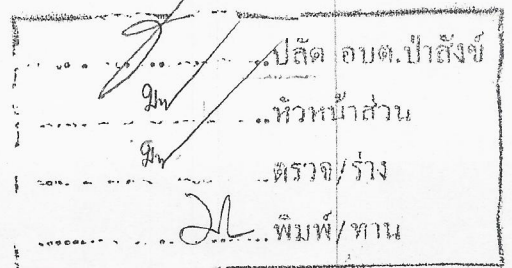 ปลัด อบต.ป่าสังข์
หัวหน้าส่วน
ตรวจ/ร่าง
พิมพ์/ทาน